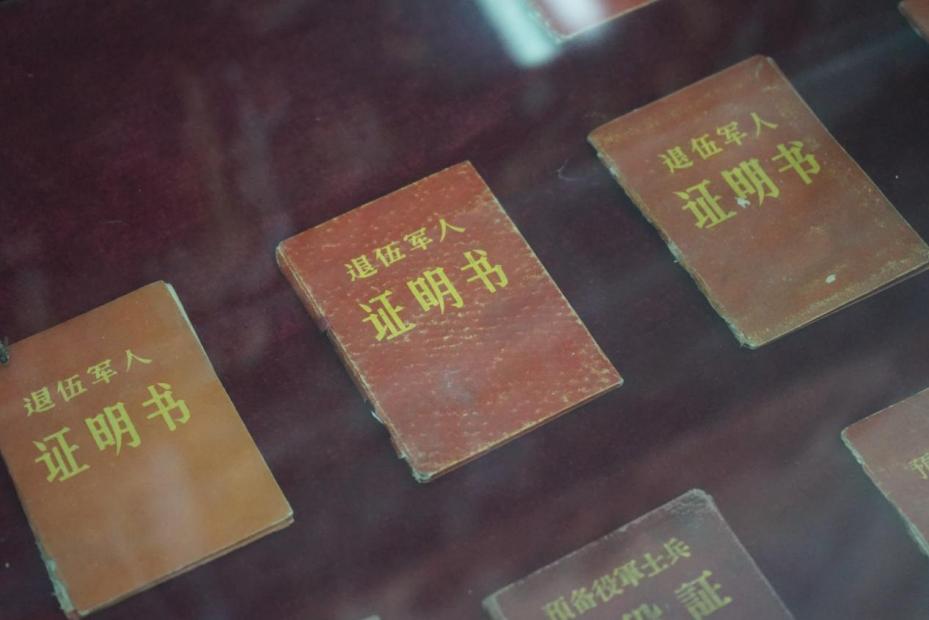 退伍军人
证明书
退伍军人
证明书
退伍军人
证明书
預备役軍士兵
証
預